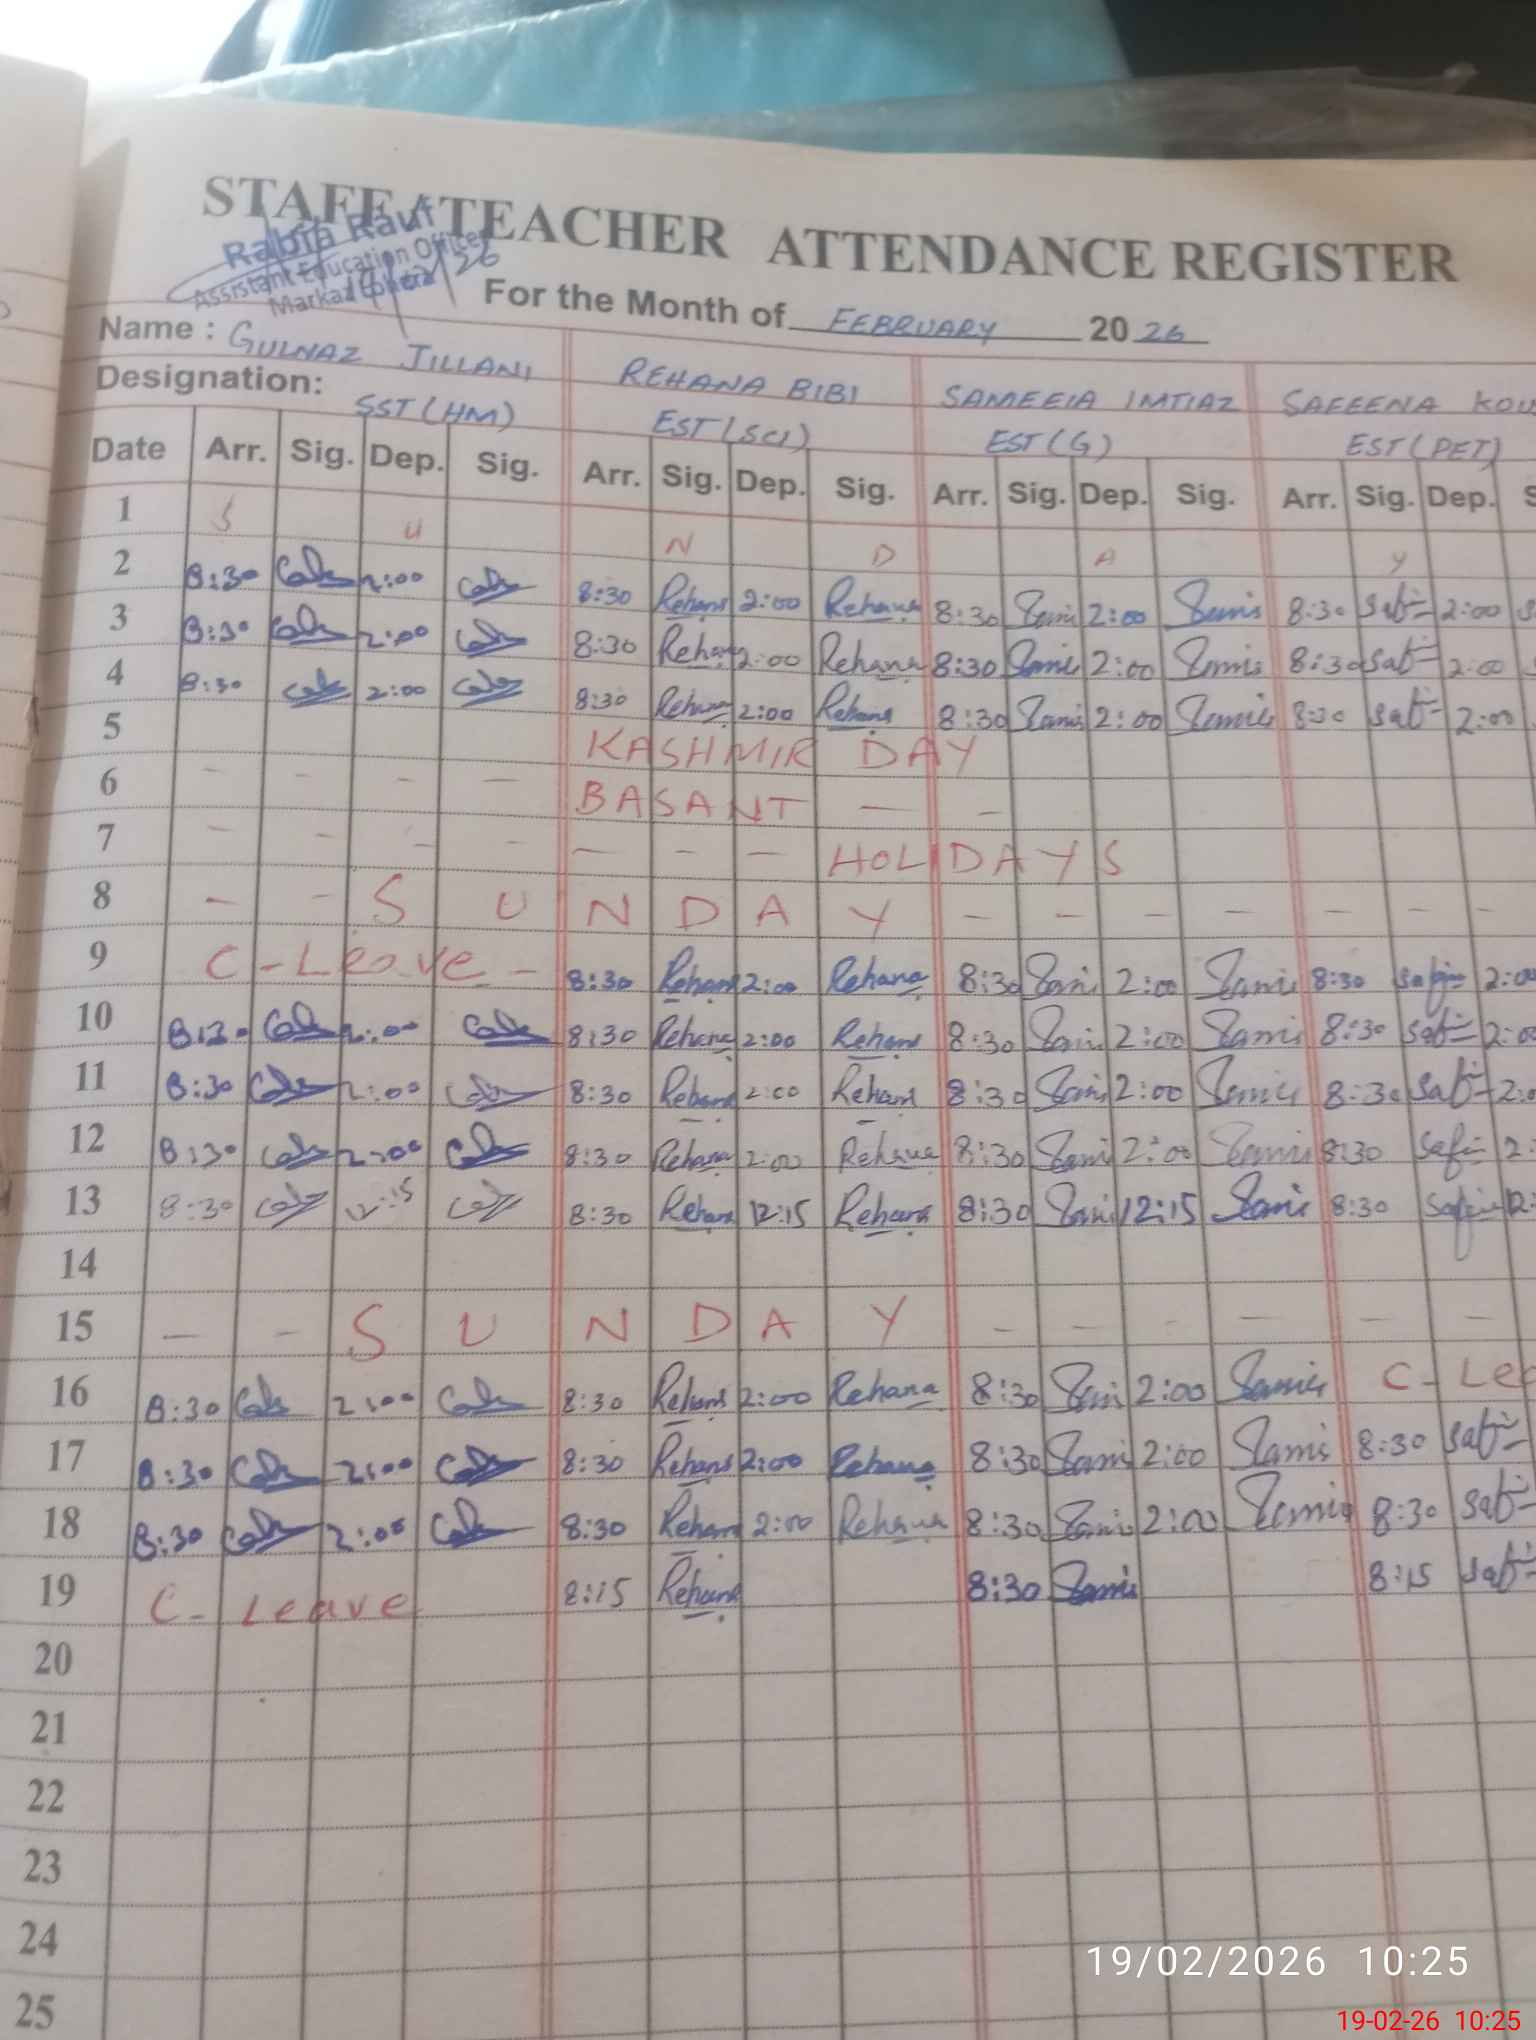 STAFF/TEACHER ATTENDANCE REGISTER
Rabia Rauf
Assistant Education Officer
Markaz
For the Month of FEBRUARY 20 26
Name : GULNAZ JILLANI REHANA BIBI SAMEEIA IMTIAZ SAFEENA KOU
Designation: SST (HM) EST (SCI) EST (G) EST (PET)
Date Arr. Sig. Dep. Sig. Arr. Sig. Dep. Sig. Arr. Sig. Dep. Sig. Arr. Sig. Dep. S
1 S U N D A Y
2 8:30 2:00 8:30 Rehana 2:00 Rehana 8:30 2:00 8:30 2:00
3 8:30 2:00 8:30 Rehana 2:00 Rehana 8:30 2:00 8:30 2:00
4 8:30 2:00 8:30 Rehana 2:00 Rehana 8:30 2:00 8:30 2:00
5 KASHMIR DAY
6 - - - - BASANT - -
7 - - - - - - - HOLIDAYS
8 - - S U N D A Y - - - - - - -
9 C - Leave - 8:30 Rehana 2:00 Rehana 8:30 2:00 8:30 2:00
10 8:30 2:00 8:30 Rehana 2:00 Rehana 8:30 2:00 8:30 2:00
11 8:30 2:00 8:30 Rehana 2:00 Rehana 8:30 2:00 8:30 2:0
12 8:30 2:00 8:30 Rehana 2:00 Rehana 8:30 2:00 8:30 2:
13 8:30 12:15 8:30 Rehana 12:15 Rehana 8:30 12:15 8:30 12:
14
15 - - S U N D A Y - - - - - -
16 8:30 2:00 8:30 Rehana 2:00 Rehana 8:30 2:00 C - Lea
17 8:30 2:00 8:30 Rehana 2:00 Rehana 8:30 2:00 8:30
18 8:30 2:00 8:30 Rehana 2:00 Rehana 8:30 2:00 8:30
19 C - Leave 8:15 Rehana 8:30 8:15
20
21
22
23
24
25
19/02/2026 10:25
19-02-26 10:25